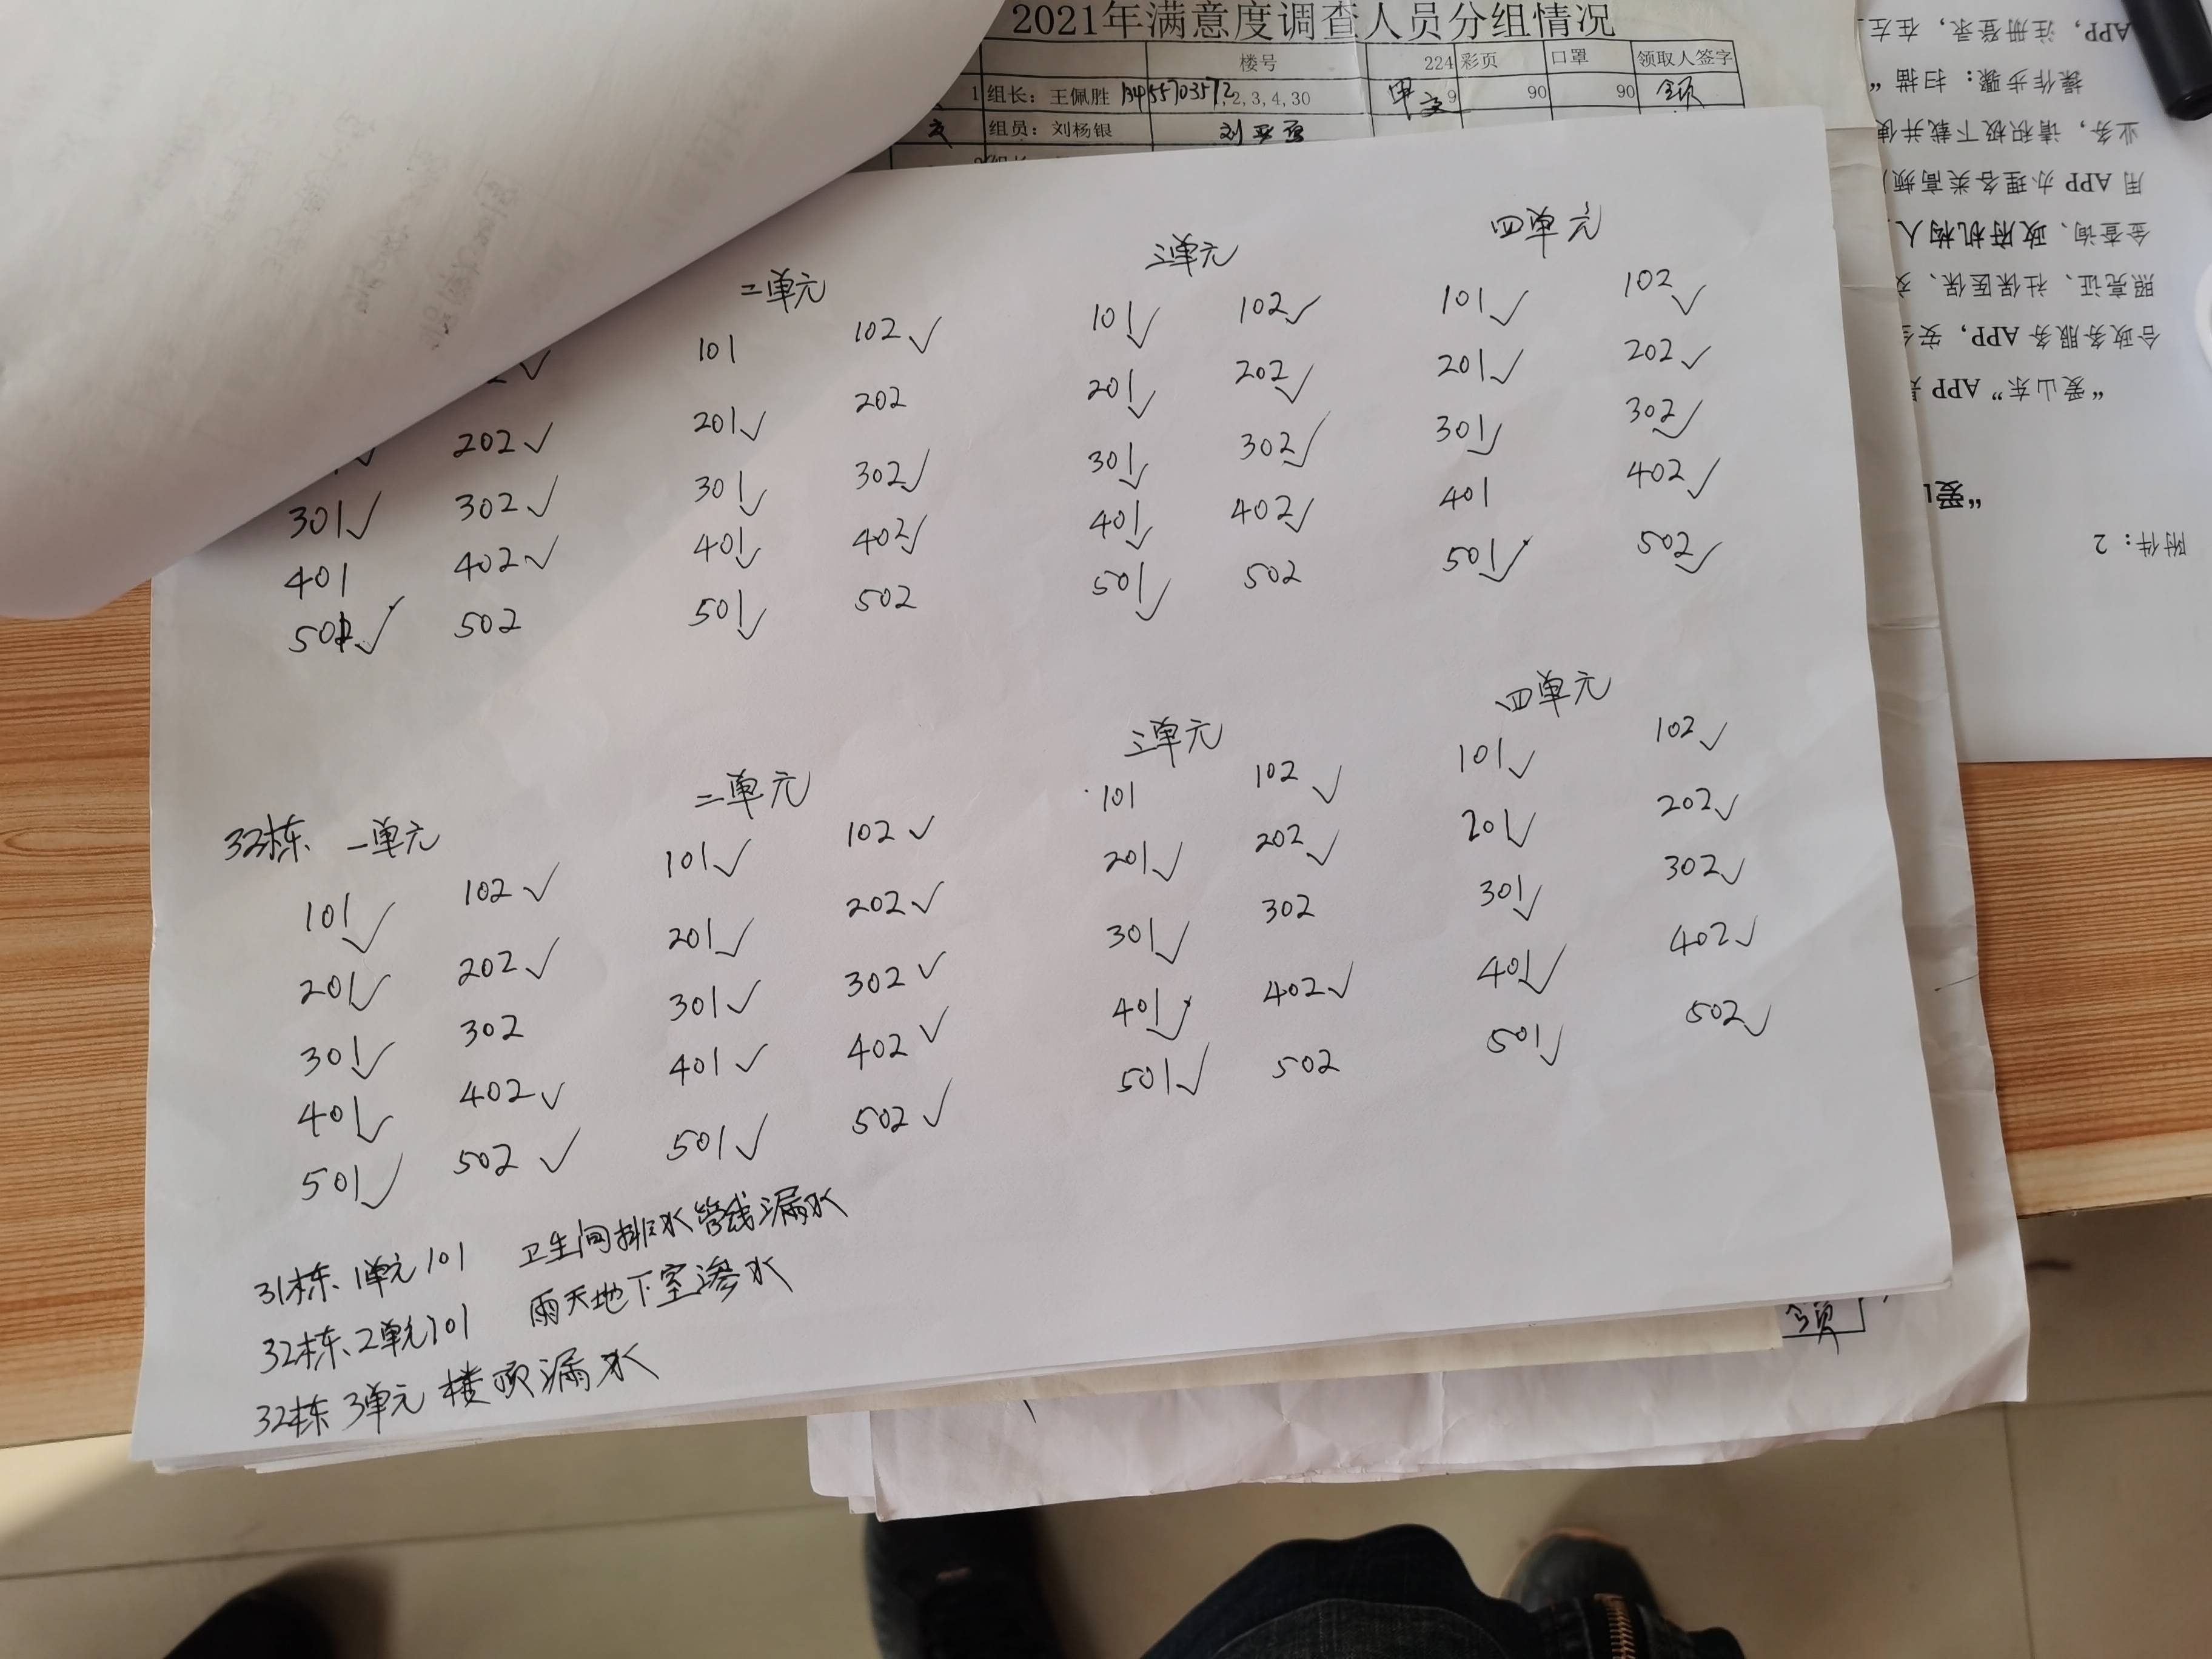 2021年满意度调查人员分组情况
楼号 224 彩页 口罩 领取人签字
1 组长：王佩胜 13455703572 1,2,3,4,30 9 90 90
组员：刘杨银
二单元 三单元 四单元
101 102✓ 101✓ 102✓ 101✓ 102✓
202✓ 201✓ 202 201✓ 202✓ 201✓ 202✓
301✓ 302✓ 301✓ 302✓ 301✓ 302✓ 301✓ 302✓
401 402✓ 401✓ 402✓ 401✓ 402✓ 401 402✓
501✓ 502 501✓ 502 501✓ 502 501✓ 502✓
32栋 一单元 二单元 三单元 四单元
101✓ 102✓ 101✓ 102✓ 101 102✓ 101✓ 102✓
201✓ 202✓ 201✓ 202✓ 201✓ 202✓ 201✓ 202✓
301✓ 302 301✓ 302✓ 301✓ 302 301✓ 302✓
401✓ 402✓ 401✓ 402✓ 401✓ 402✓ 401✓ 402✓
501✓ 502✓ 501✓ 502✓ 501✓ 502 501✓ 502✓
31栋 1单元 101 卫生间排水管线漏水
32栋 2单元 101 雨天地下室渗水
32栋 3单元 楼顶漏水
附件：2
“爱
“爱山东” APP
合政务服务 APP，安
照亮证、社保医保、交
金查询、政府机构人
用 APP 办理各类高频
业务，请积极下载并使
操作步骤：扫描“
APP，注册登录，在左